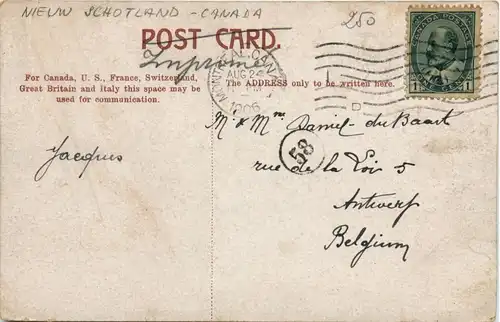 NIEUW SCHOTLAND - CANADA
250
POST CARD.
Imprimé
For Canada, U. S., France, Switzerland,
Great Britain and Italy this space may be
used for communication.
The ADDRESS only to be written here.
AUG 2
1906
CANADA POSTAGE
1 CENT 1
M. & Mme Daniel - du Baart
58
Jacques
rue de la Loi 5
Antwerp
Belgium